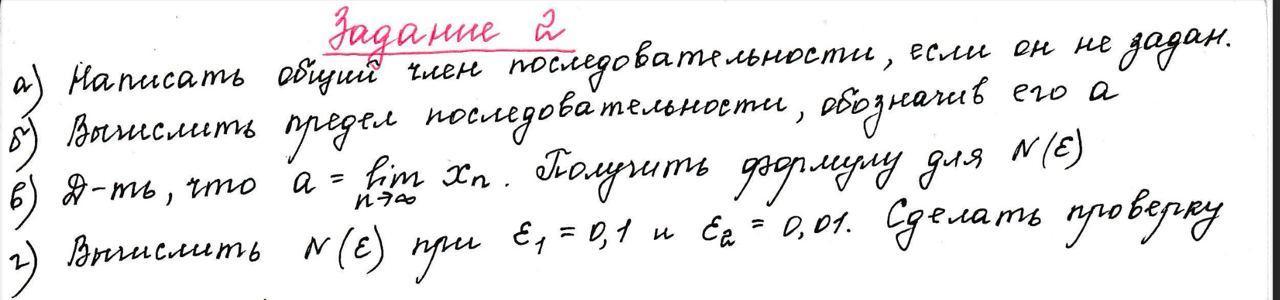 Задание 2
а) Написать общий член последовательности, если он не задан.
б) Вычислить предел последовательности, обозначив его a
в) Д-ть, что a = lim xₙ. Получить формулу для N(ε)
n→∞
г) Вычислить N(ε) при ε₁ = 0,1 и ε₂ = 0,01. Сделать проверку